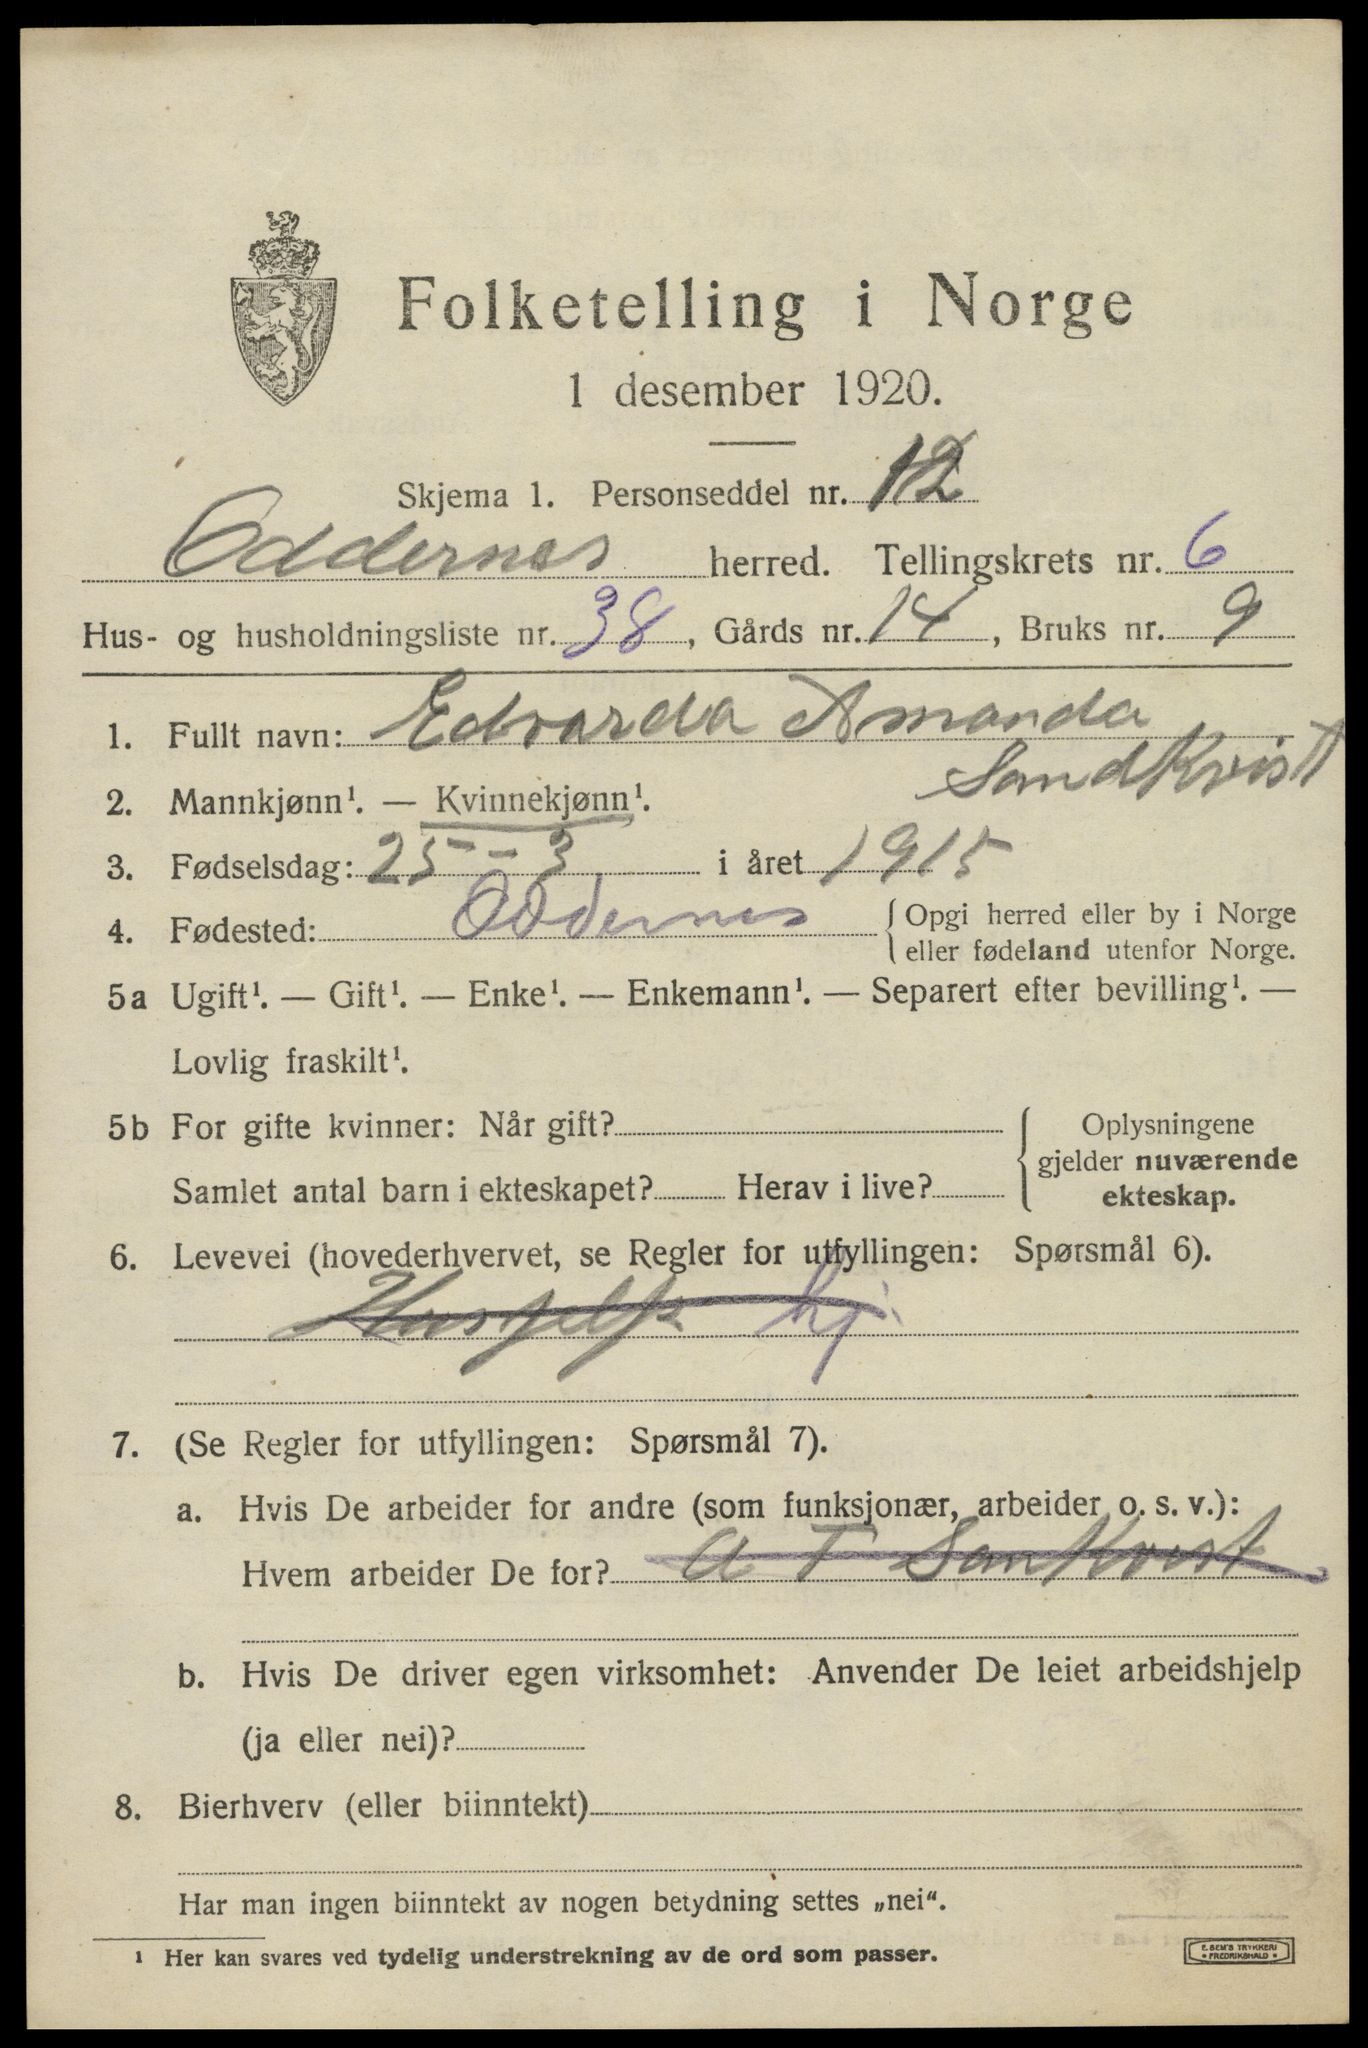 Folketelling i Norge
1 desember 1920.
Skjema 1. Personseddel nr. 12
Oddernes herred. Tellingskrets nr. 6
Hus- og husholdningsliste nr. 38, Gårds nr. 14, Bruks nr. 9
1. Fullt navn: Edvarda Amanda
Sandkvist
2. Mannkjønn¹. — Kvinnekjønn¹.
3. Fødselsdag: 25-3 i året 1915
4. Fødested: Oddernes { Opgi herred eller by i Norge
eller fødeland utenfor Norge.
5a Ugift¹. — Gift¹. — Enke¹. — Enkemann¹. — Separert efter bevilling¹. —
Lovlig fraskilt¹.
5b For gifte kvinner: Når gift? { Oplysningene
gjelder nuværende
Samlet antal barn i ekteskapet? Herav i live?
ekteskap.
6. Levevei (hovederhvervet, se Regler for utfyllingen: Spørsmål 6).
Husjelp hj.
7. (Se Regler for utfyllingen: Spørsmål 7).
a. Hvis De arbeider for andre (som funksjonær, arbeider o. s. v.):
Hvem arbeider De for? A T Sankvist
b. Hvis De driver egen virksomhet: Anvender De leiet arbeidshjelp
(ja eller nei)?
8. Bierhverv (eller biinntekt)
Har man ingen biinntekt av nogen betydning settes „nei“.
¹ Her kan svares ved tydelig understrekning av de ord som passer.
E. SEM'S TRYKKERI
• FREDRIKSHALD •